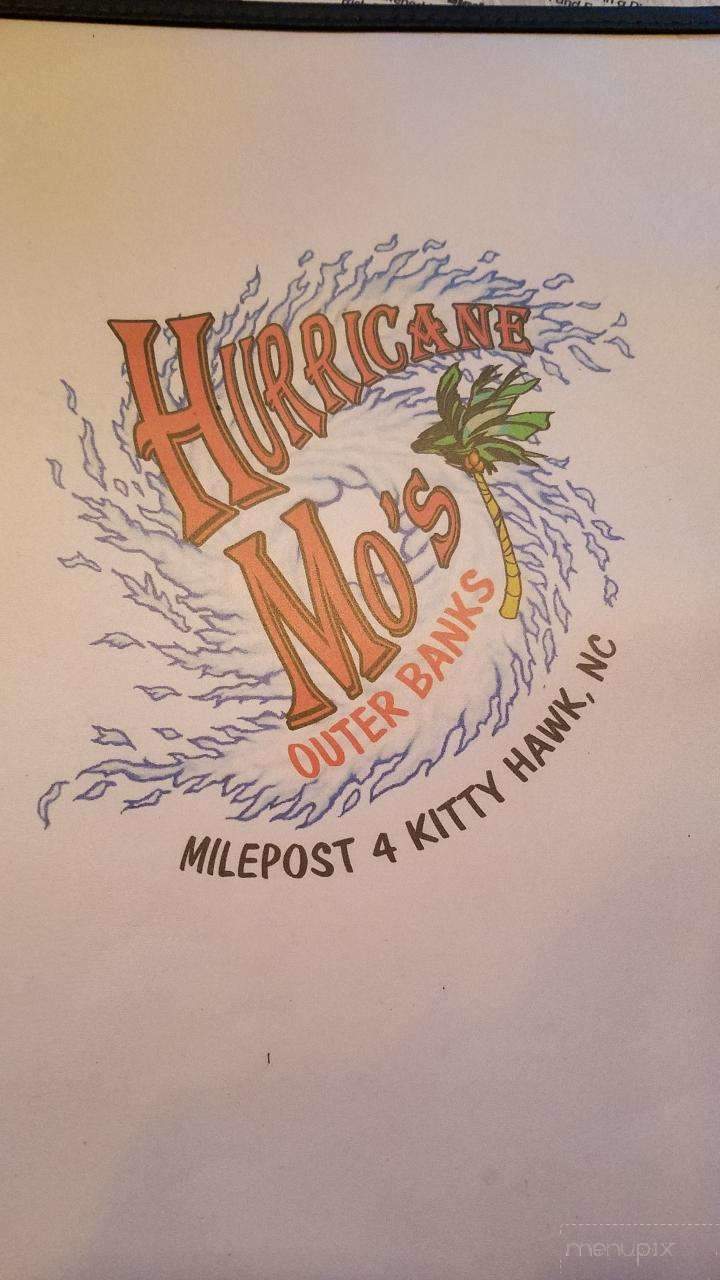 HURRICANE
MO'S
OUTER BANKS
MILEPOST 4 KITTY HAWK, NC
menupix